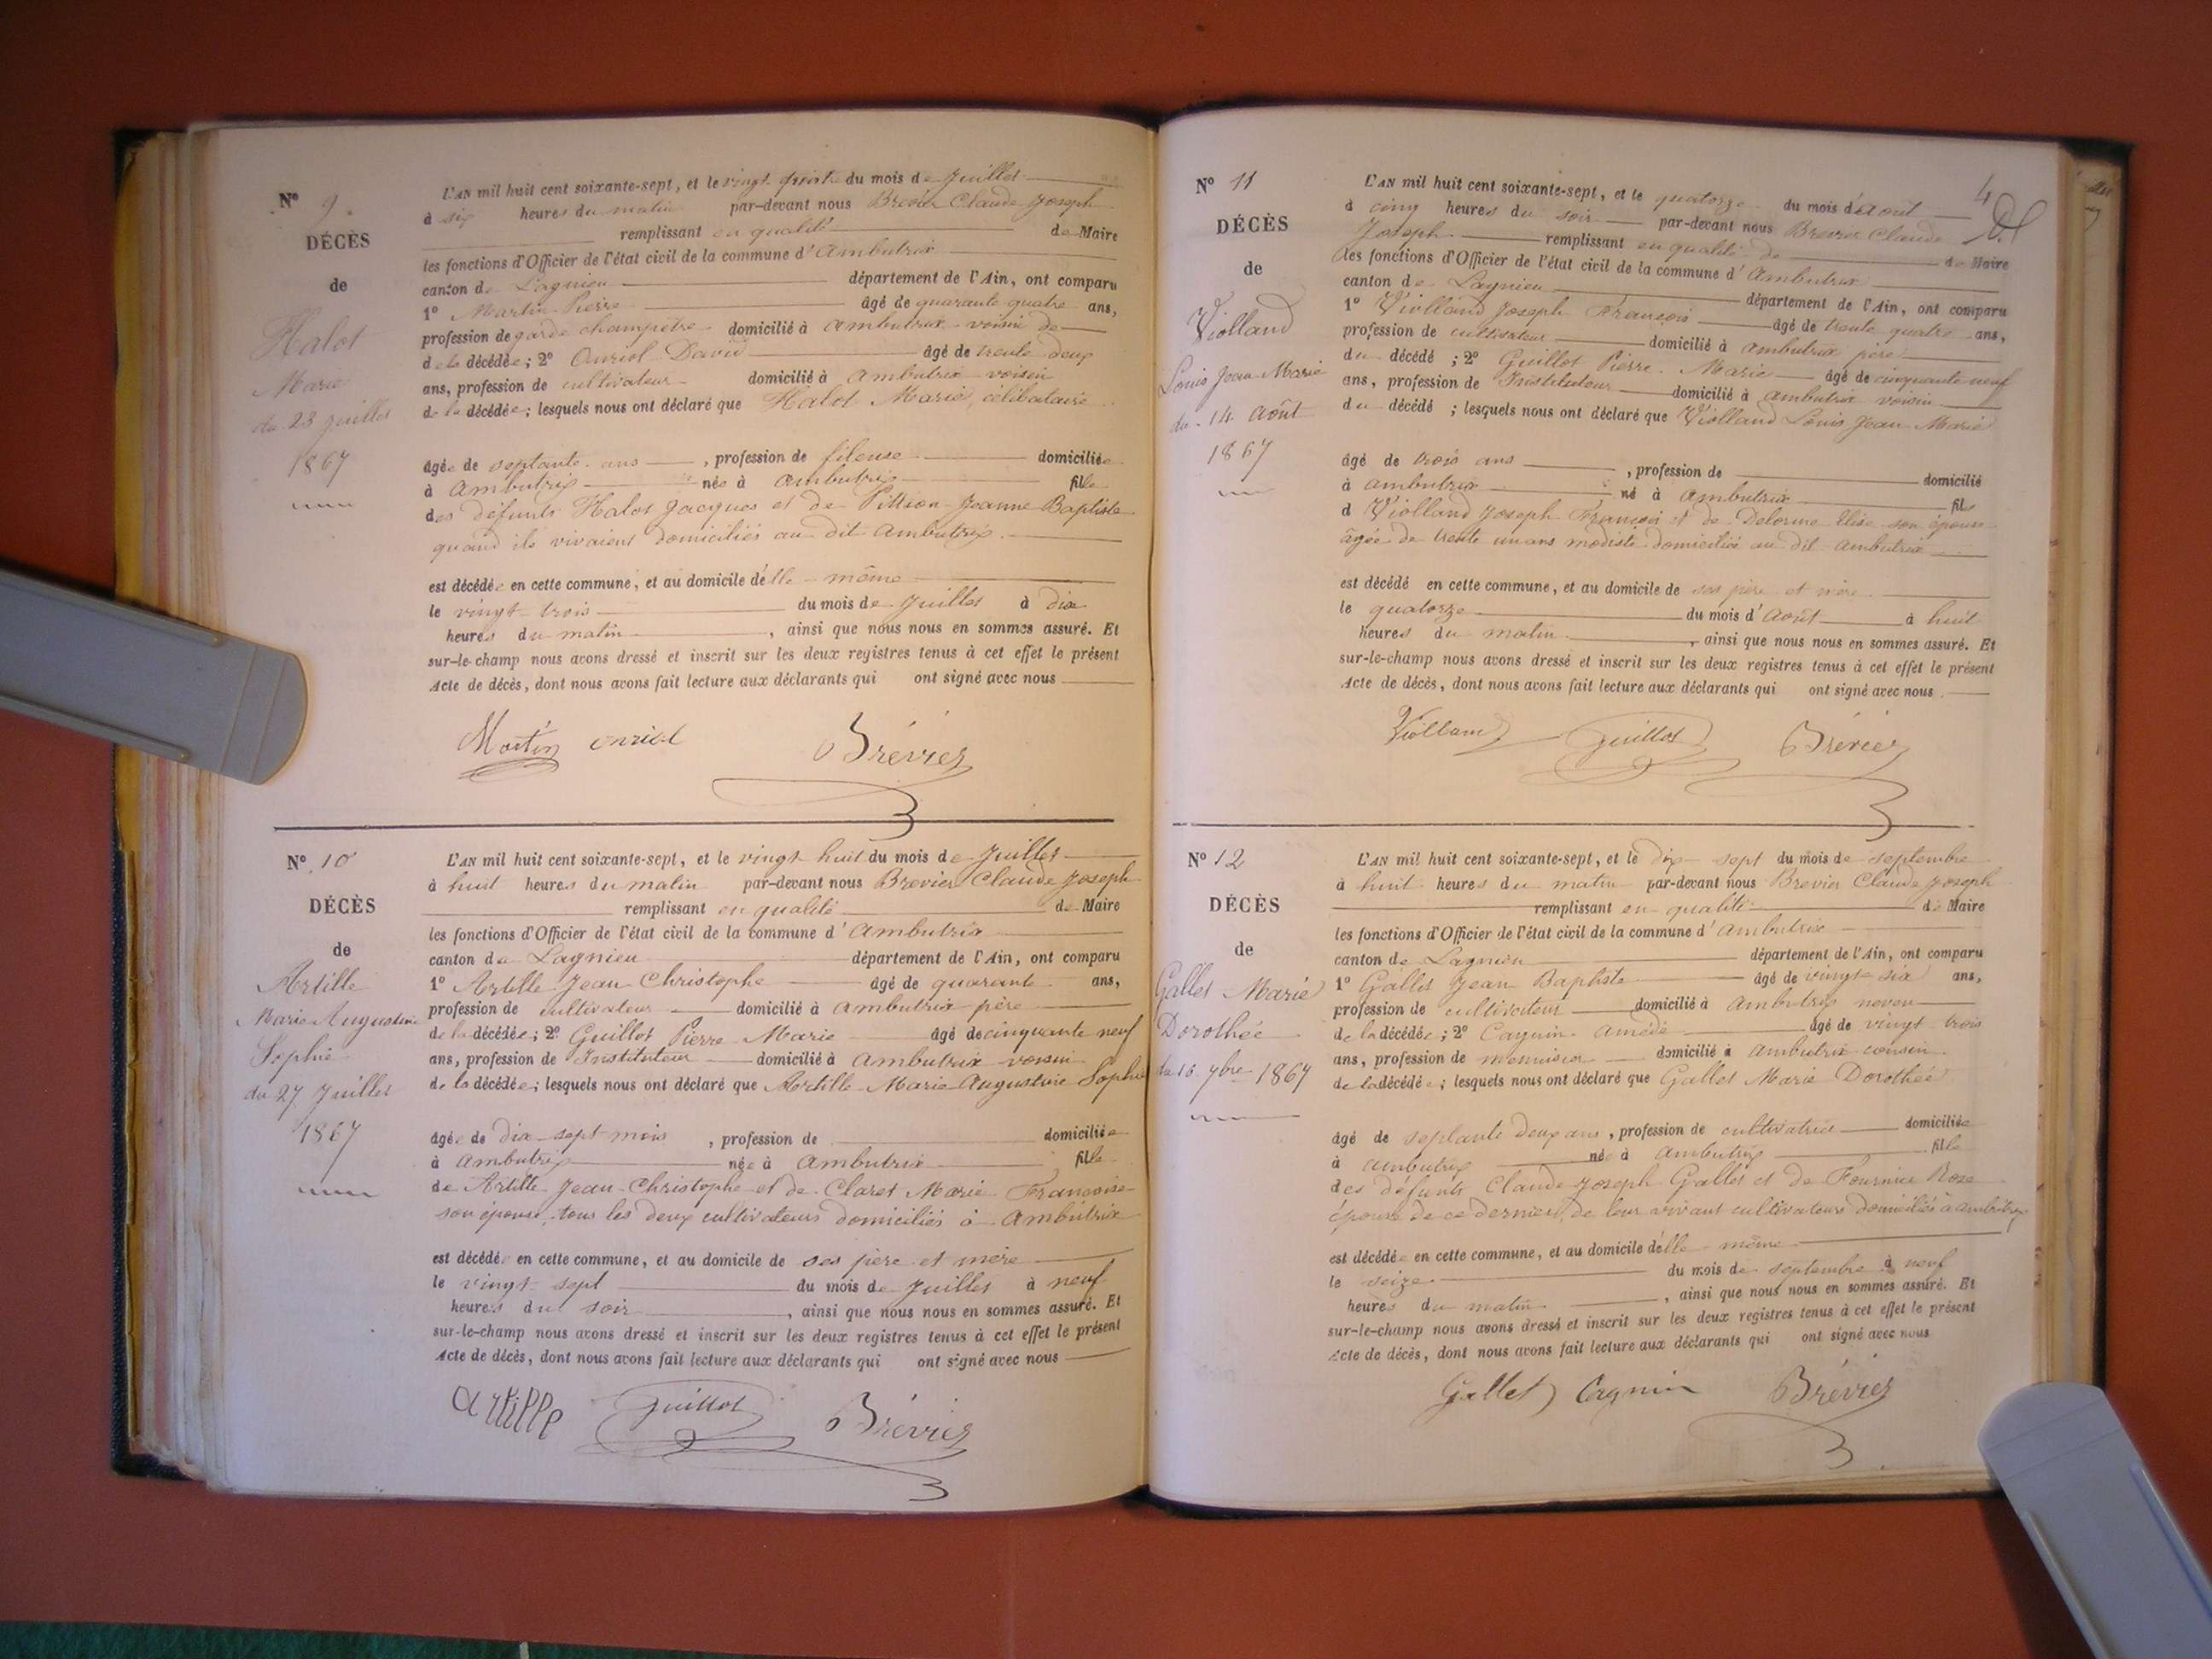 Nº 9.
DÉCÈS
de
Halot
Marie
du 23 juillet
1867
L'AN mil huit cent soixante-sept, et le vingt quatre du mois de juillet
à six heures du matin par-devant nous Brevier Claude Joseph
remplissant en qualité de Maire
les fonctions d'Officier de l'état civil de la commune d'Ambutrix
canton de Lagnieu département de l'Ain, ont comparu
1º Martin Pierre âgé de quarante quatre ans,
profession de garde champêtre domicilié à Ambutrix voisin de
de la décédée; 2º Onriol David âgé de trente deux
ans, profession de cultivateur domicilié à Ambutrix voisin
de la décédée; lesquels nous ont déclaré que Halot Marie, célibataire
âgée de septante ans, profession de fileuse domiciliée
à Ambutrix née à Ambutrix fille
des défunts Halot Jacques et de Jeanne Baptiste
quand ils vivaient domiciliés au dit Ambutrix.
est décédée en cette commune, et au domicile d'elle même
le vingt trois du mois de juillet à dix
heures du matin, ainsi que nous nous en sommes assuré. Et
sur-le-champ nous avons dressé et inscrit sur les deux registres tenus à cet effet le présent
Acte de décès, dont nous avons fait lecture aux déclarants qui ont signé avec nous
Martin onriol Brévier
Nº 10
DÉCÈS
de
Artille
Marie Augustine
Sophie
du 27 Juillet
1867
L'AN mil huit cent soixante-sept, et le vingt huit du mois de Juillet
à huit heures du matin par-devant nous Brevier Claude Joseph
remplissant en qualité de Maire
les fonctions d'Officier de l'état civil de la commune d'Ambutrix
canton de Lagnieu département de l'Ain, ont comparu
1º Artille Jean Christophe âgé de quarante ans,
profession de cultivateur domicilié à Ambutrix père
de la décédée; 2º Guillot Pierre Marie âgé de cinquante neuf
ans, profession de Instituteur domicilié à Ambutrix voisin
de la décédée; lesquels nous ont déclaré que Artille Marie Augustine Sophie
âgée de dix-sept mois, profession de domiciliée
à Ambutrix née à Ambutrix fille
de Artille Jean-Christophe et de Claret Marie Françoise
son épouse, tous les deux cultivateurs domiciliés à Ambutrix
est décédée en cette commune, et au domicile de ses père et mère
le vingt sept du mois de Juillet à neuf
heures du soir, ainsi que nous nous en sommes assuré. Et
sur-le-champ nous avons dressé et inscrit sur les deux registres tenus à cet effet le présent
Acte de décès, dont nous avons fait lecture aux déclarants qui ont signé avec nous
artille Guillot Brévier
4
Nº 11
DÉCÈS
de
Violland
Louis Jean Marie
du 14 Août
1867
L'AN mil huit cent soixante-sept, et le quatorze du mois d'Août
à cinq heures du soir par-devant nous Brevier Claude
Joseph remplissant en qualité de de Maire
les fonctions d'Officier de l'état civil de la commune d'Ambutrix
canton de Lagnieu département de l'Ain, ont comparu
1º Violland Joseph François âgé de trente quatre ans,
profession de cultivateur domicilié à Ambutrix père
du décédé; 2º Guillot Pierre Marie âgé de cinquante neuf
ans, profession de Instituteur domicilié à Ambutrix voisin
du décédé; lesquels nous ont déclaré que Violland Louis Jean Marie
âgé de trois ans, profession de domicilié
à Ambutrix né à Ambutrix fils
d Violland Joseph François et de Delorme Elise son épouse
âgée de trente un ans modiste domiciliée au dit Ambutrix
est décédé en cette commune, et au domicile de ses père et mère
le quatorze du mois d'Août à huit
heures du matin, ainsi que nous nous en sommes assuré. Et
sur-le-champ nous avons dressé et inscrit sur les deux registres tenus à cet effet le présent
Acte de décès, dont nous avons fait lecture aux déclarants qui ont signé avec nous
Violland Guillot Brévier
Nº 12
DÉCÈS
de
Gallet Marie
Dorothée
du 16 7bre 1867
L'AN mil huit cent soixante-sept, et le dix sept du mois de septembre
à huit heures du matin par-devant nous Brevier Claude Joseph
remplissant en qualité de Maire
les fonctions d'Officier de l'état civil de la commune d'Ambutrix
canton de Lagnieu département de l'Ain, ont comparu
1º Gallet Jean Baptiste âgé de vingt six ans,
profession de cultivateur domicilié à Ambutrix neveu
de la décédée; 2º Cagnin Amédé âgé de vingt trois
ans, profession de menuisier domicilié à Ambutrix cousin
de la décédée; lesquels nous ont déclaré que Gallet Marie Dorothée
âgé de septante deux ans, profession de cultivatrice domiciliée
à Ambutrix née à Ambutrix fille
des défunts Claude Joseph Gallet et de Fournier Rose
épouse de ce dernier, de leur vivant cultivateurs domiciliés à Ambutrix
est décédée en cette commune, et au domicile d'elle même
le seize du mois de septembre à neuf
heures du matin, ainsi que nous nous en sommes assuré. Et
sur-le-champ nous avons dressé et inscrit sur les deux registres tenus à cet effet le présent
Acte de décès, dont nous avons fait lecture aux déclarants qui ont signé avec nous
Gallet Cagnin Brévier